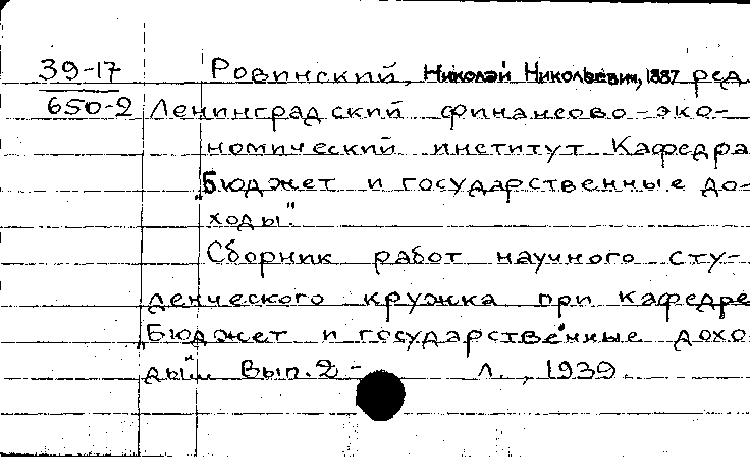 39-17 Ровинский, Николай Николаевич, 1887 ред.
650-2 Ленинградский финансово-эко-
номический институт Кафедра
"Бюджет и государственные до-
ходы".
Сборник работ научного сту-
денческого кружка при кафедре
"Бюджет и государственные дохо
ды". Вып. 2 - Л., 1939.